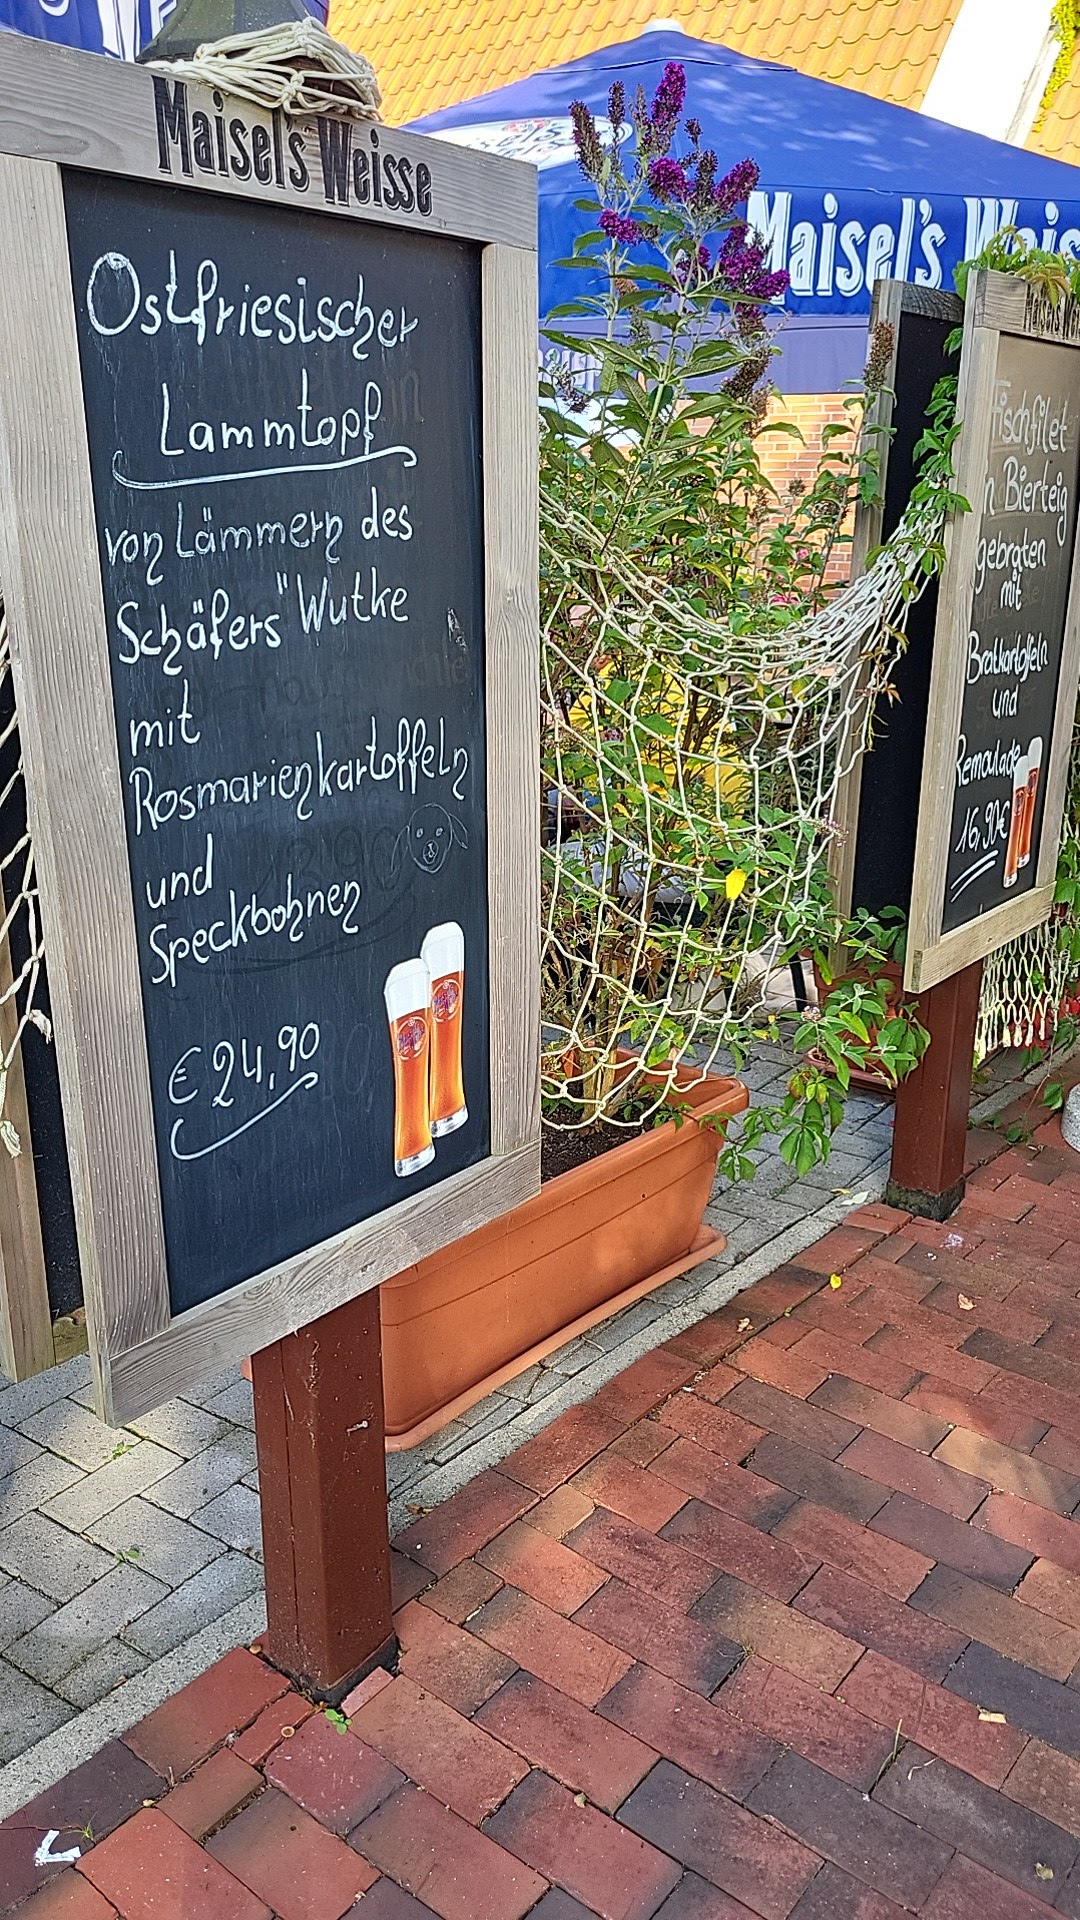 Maisel's Weisse
Ostfriesischer
Lammtopf
von Lämmern des
Schäfers "Wutke
mit
Rosmarienkartoffeln
und
Speckbohnen
€ 24,90
Maisel's
Fischfilet
Bierteig
gebraten
mit
Bratkartoffeln
und
Remoulade
16,90€